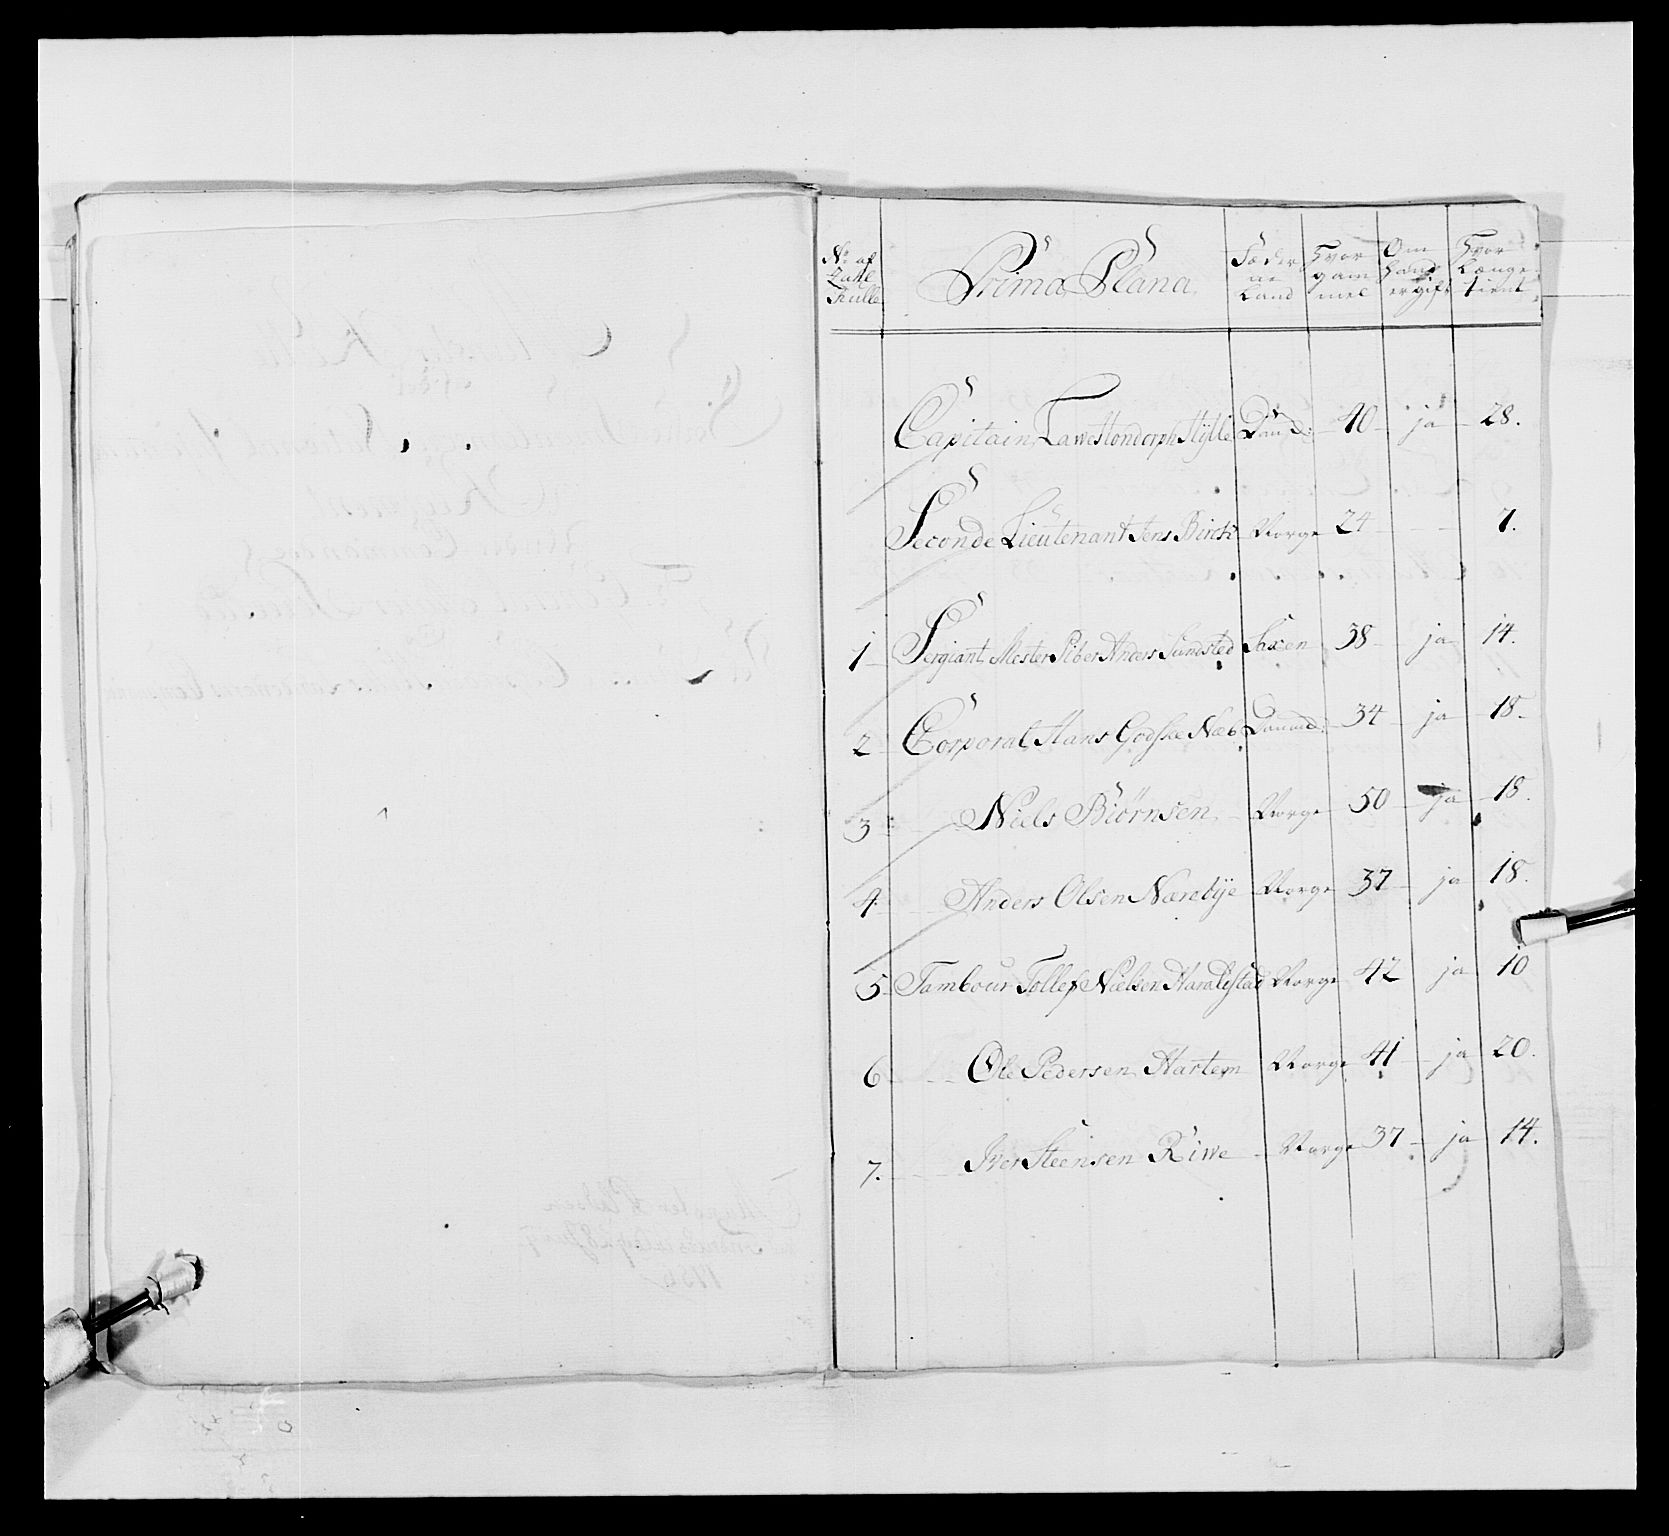 No af Zahl Rulle | Prima Plana | Fæder ne Land | Hvor gam mel | Om hand er gift | Hvor længe tient
Capitain Lawe Hondorph Hylle Danmd: 40 ja 28.
Seconde Lieutenant Jens Birch Norge 24 - - 7.
1 Sergiant Mester Piber Anders Sundsted Saxen 38 ja 14.
2 Corporal Hans Godske Næb Danmd: 34 ja 18.
3 Niels Biørnsen Norge 50 ja 18.
4 Anders Olsen Nærebÿe Norge 37 ja 18.
5 Tambour Tollef Nielsen Haralstad Norge 42 ja 10
6 Ole Pedersen Hartem Norge 41 ja 20.
7. Iver Steensen Riwe Norge 37 ja 14.